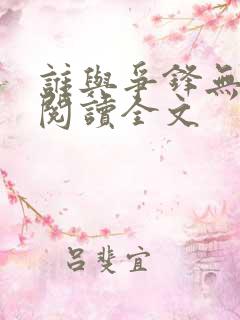 誰與爭鋒無
閱讀全文
呂斐宜